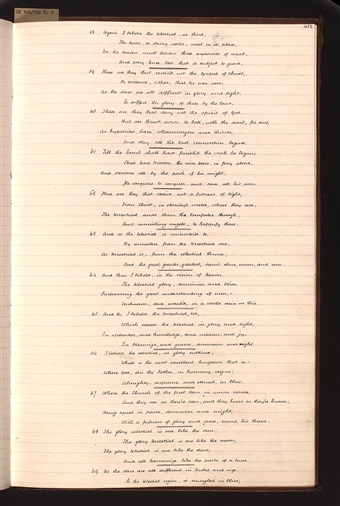 58. Again I behold the telestial, as third,
The lesser, or starry world, next in its place,
For the leaven must leaven three measures of meal,
And every knee bow that is subject to grace.
59. These are they that receiv'd not the gospel of Christ,
Or evidence, either, that he ever was;
As the stars are all diff'rent in glory and light,
So differs the glory of these by the laws.
60. These are they that deny not the spirit of God,
But are thrust down to hell, with the devil, for sins,
As hypocrites, liars, whoremongers and thieves,
And stay till the last resurrection begins.
61. Till the Lamb shall have finish'd the work he begun;
Shall have trodden the wine press, in fury alone,
And overcome all by the pow'r of his might:
He conquers to conquer, and save all his own.
62. These are they that receive not a fulness of light,
From Christ, in eternity's world, where they are,
The terrestrial sends them the Comforter, though;
And minist'ring angels, to happify there.
63. And so the telestial is minister'd to,
By ministers from the terrestrial one,
As terrestrial is, from the celestial throne;
And the great, greater, greatest, seem's stars, moon, and sun.
64. And thus I beheld, in the vision of heav'n,
The telestial glory, dominion and bliss,
Surpassing the great understanding of men,—
Unknown, save reveal'd, in a world vain as this.
65. And lo, I beheld the terrestrial, too,
Which excels the telestial in glory and light,
In splendor, and knowledge, and wisdom, and joy,
In blessings, and graces, dominion and might.
66. I beheld the celestial, in glory sublime;
Which is the most excellent kingdom that is,—
Where God, e'en the Father, in harmony reigns;
Almighty, supreme, and eternal, in bliss.
67. Where the Church of the first born in union reside,
And they see as they're seen, and they know as they're known;
Being equal in power, dominion and might,
With a fulness of glory and grace, round his throne.
68. The glory celestial is one like the sun;
The glory terrestrial is one like the moon;
The glory telestial is one like the stars,
And all harmonize like the parts of a tune.
69. As the stars are all different in lustre and size,
So the telestial region, is mingled in bliss;